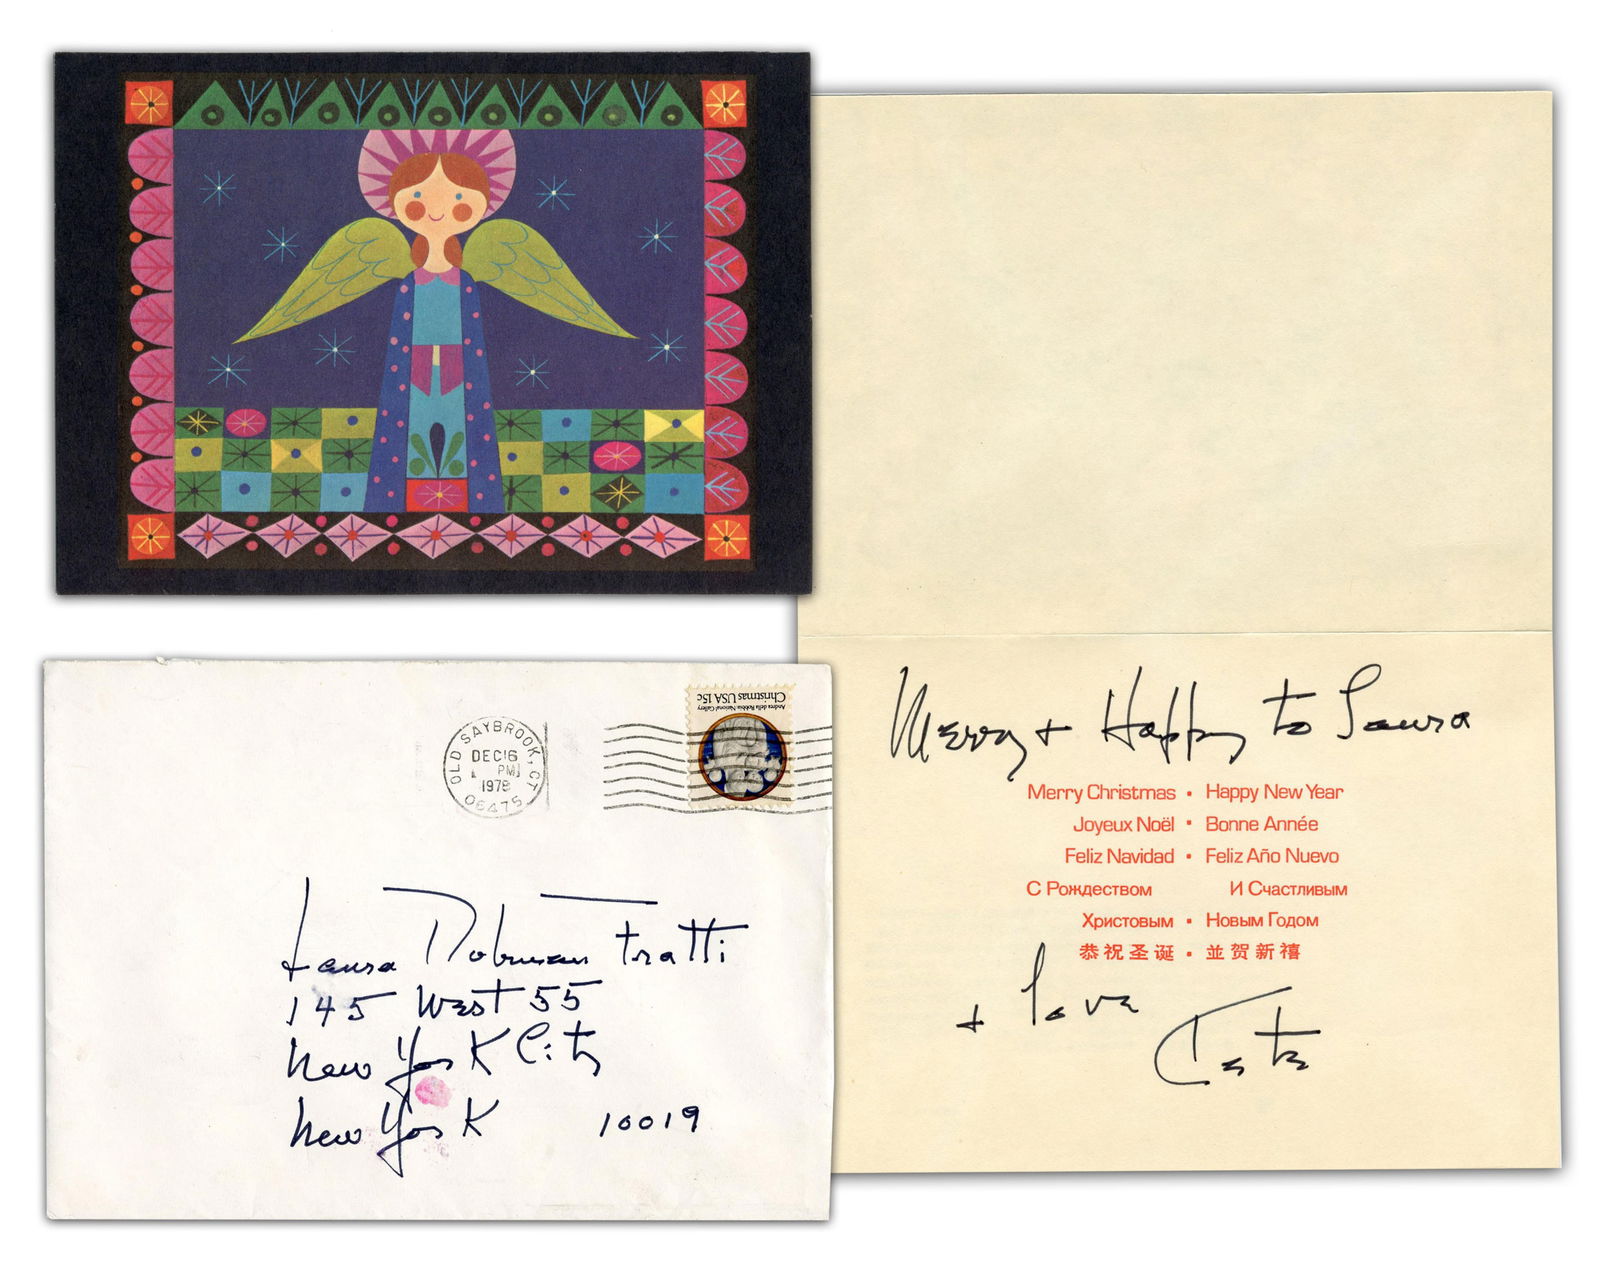 Andrea della Robbia National Gallery
Christmas USA 15c
OLD SAYBROOK, CT
DEC 16
PM
1978
06475
Laura Dubman Fratti
145 West 55
New York City
New York 10019
Merry + Happy to Laura
Merry Christmas • Happy New Year
Joyeux Noël • Bonne Année
Feliz Navidad • Feliz Año Nuevo
С Рождеством И Счастливым
Христовым • Новым Годом
恭祝圣诞 • 並贺新禧
+ love
Kate